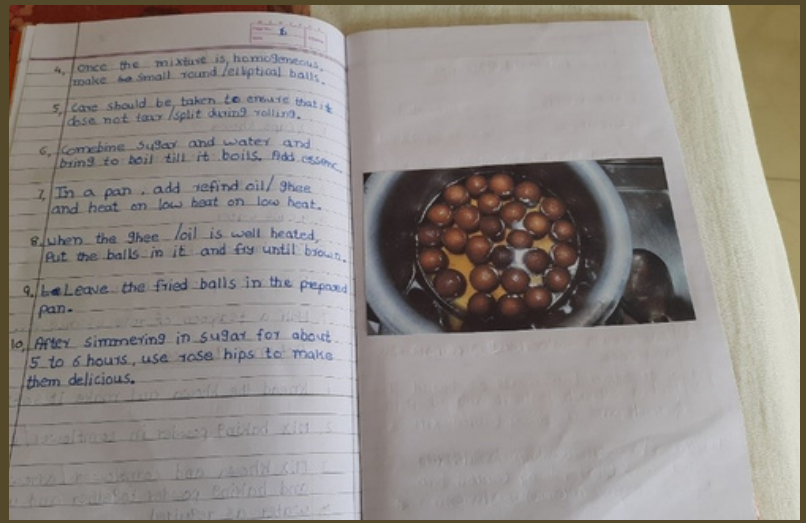 6
4, Once the mixture is, homogeneous,
make small round /elliptical balls.
5, Care should be, taken to ensure that it
dose not tear /split during rolling.
6, Comebine sugar and water and
bring to boil till it boils. Add essenc.
7, In a pan, add refind oil/ ghee
and heat on low beat on low heat.
8. when the ghee /oil is well heated,
Put the balls in it and fry until brown.
9. Leave the fried balls in the prepared
pan.
10, After simmering in sugar for about
5 to 6 hours, use rose hips to make
them delicious.